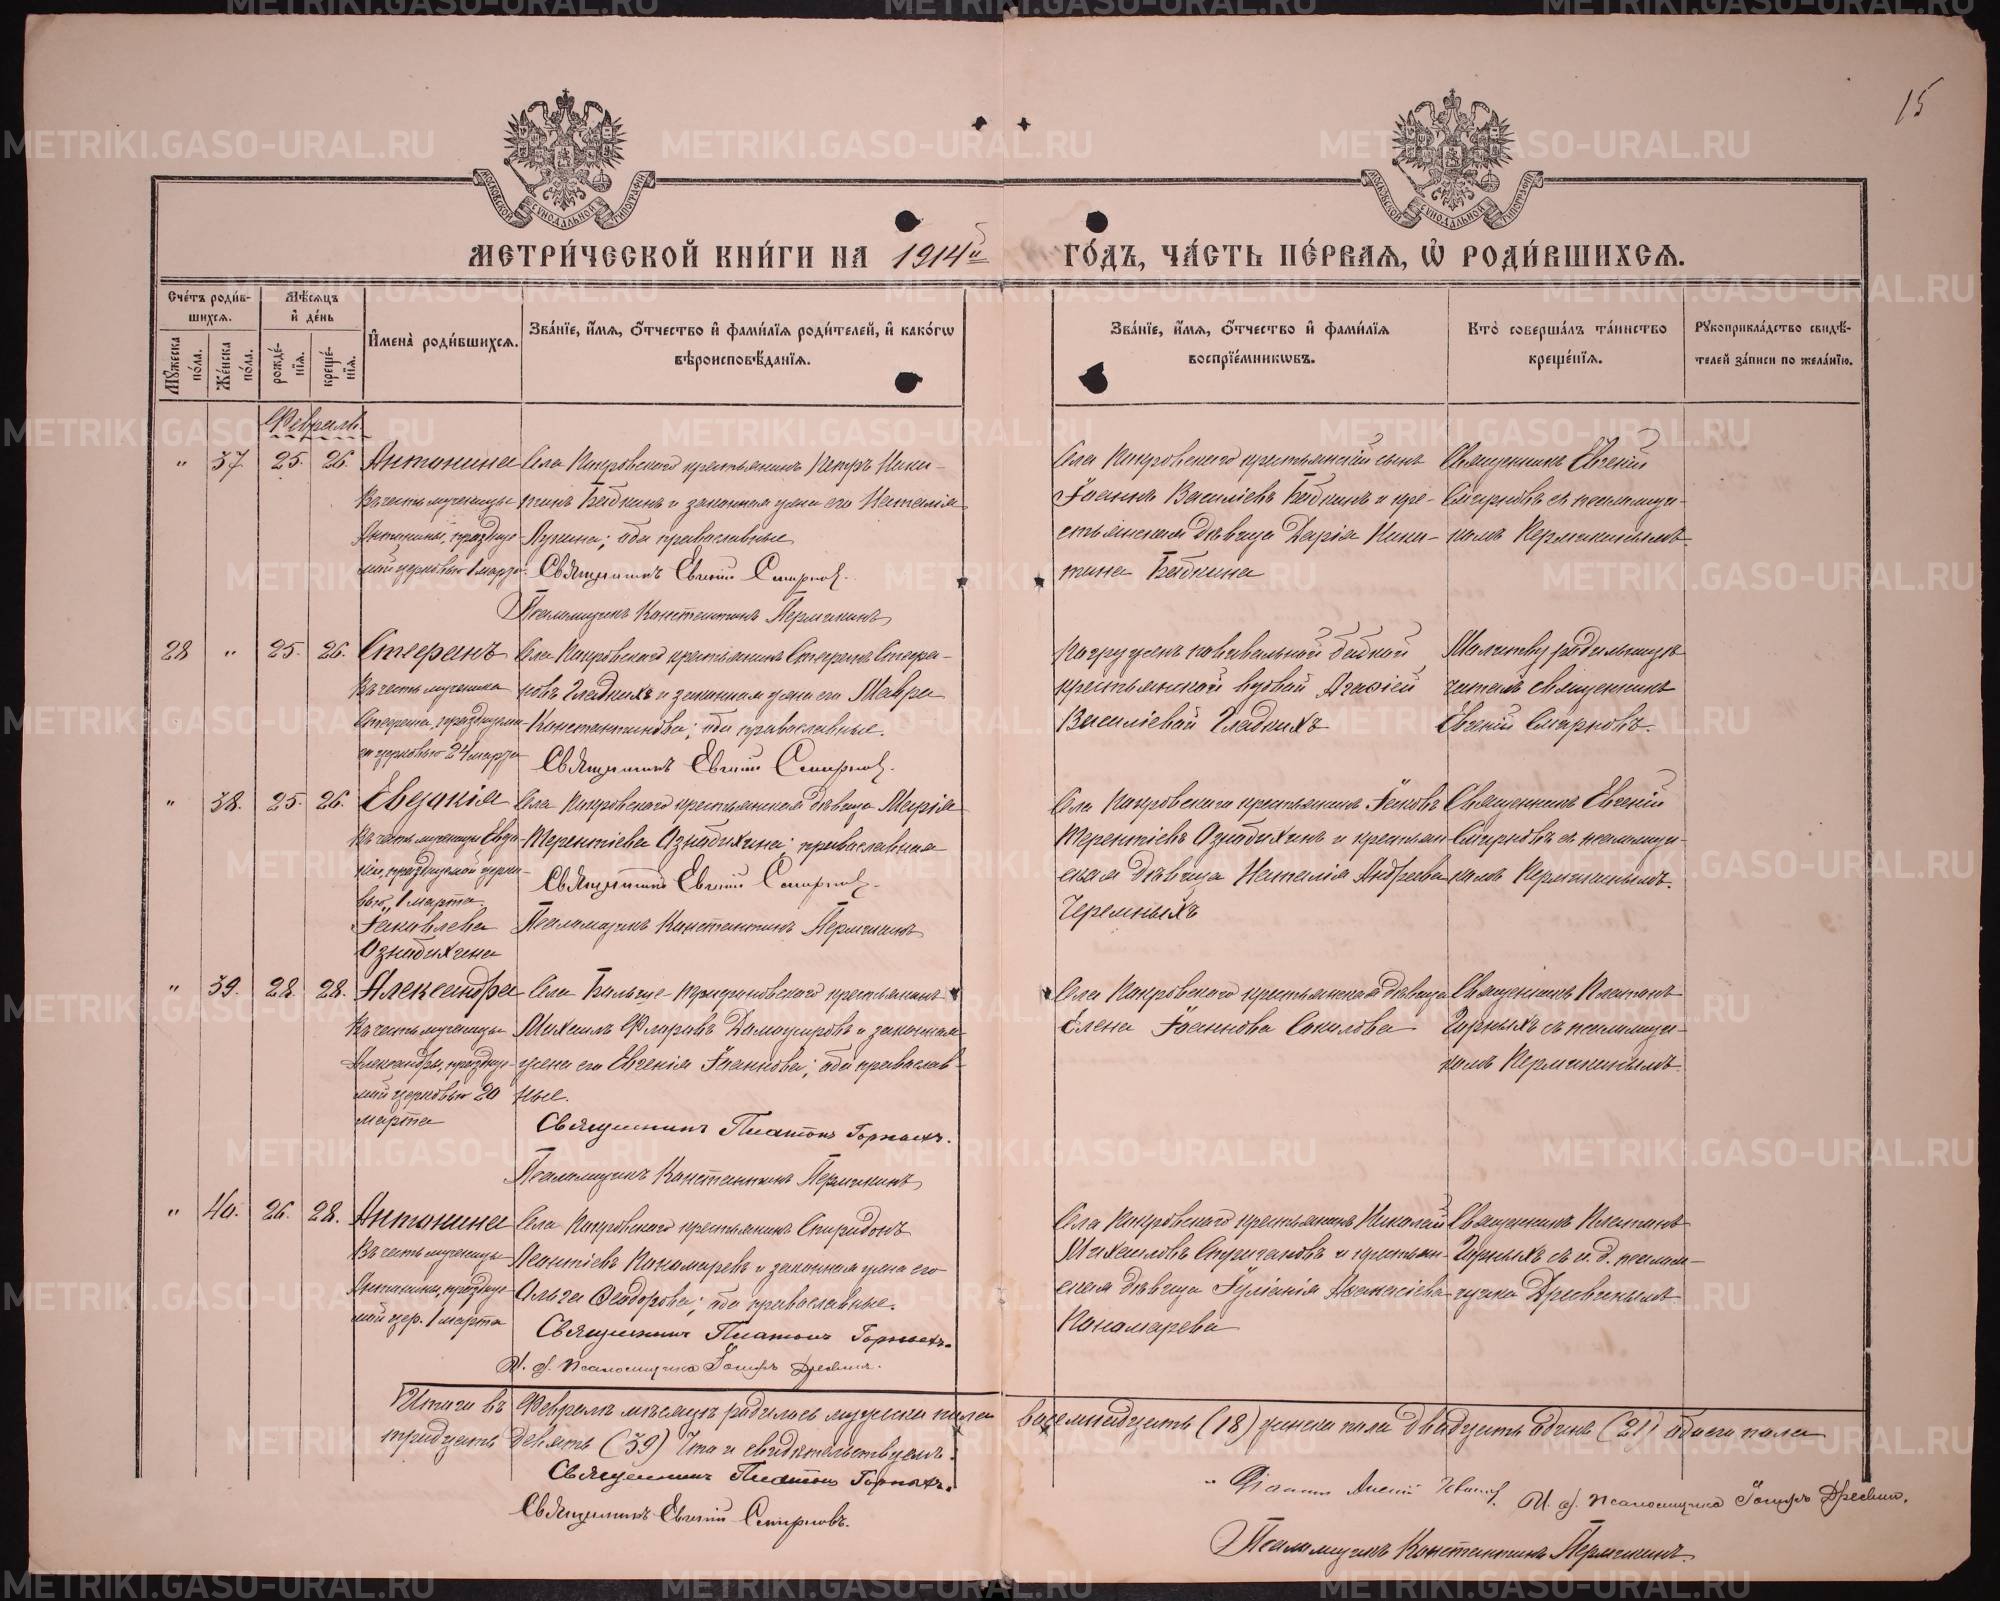 15
МОСКОВСКОЙ СѴНОДАЛЬНОЙ ТИПОГРАФІИ
МОСКОВСКОЙ СѴНОДАЛЬНОЙ ТИПОГРАФІИ
МЕТРИ́ЧЕСКОЙ КНИ́ГИ НА 1914й ГО́ДЪ, ЧА́СТЬ ПЕ́РВАЯ, Ѡ҆ РОДИ́ВШИХСЯ.
Сче́тъ роди́в-
шихся.
Мꙋжеска по́ла.
Же́нска по́ла.
Мѣ́сяцъ
и҆ де́нь
рожде́-
нїя.
креще́-
нїя.
И҆мена̀ роди́вшихся.
Зва́нїе, и҆́мя, ѻ҆́тчество и҆ фами́лїя роди́телей, и҆ како́гѡ
вѣроисповѣ́данїя.
Зва́нїе, и҆́мя, ѻ҆́тчество и҆ фами́лїя
воспрїе́мникѡвъ.
Кто̀ соверша́лъ та́инство
креще́нїя.
Рꙋкоприкла́дство свидѣ́-
телей за́писи по жела́нїю.
Февраль
" 37. 25. 26. Антонина
въ честь мученицы
Антонины, празднуе-
мой церковью 1 марта.
Села Покровскаго крестьянинъ Петръ Ники-
тинъ Бабкинъ и законная жена его Наталія
Лукина; оба православные
Священникъ Евгеній Смирновъ.
Псаломщикъ Константинъ Пермикинъ
Села Покровскаго крестьянскій сынъ
Іоаннъ Василіевъ Бабкинъ и кре-
стьянская дѣвица Дарія Ники-
тина Бабкина
Священникъ Евгеній
Смирновъ съ псаломщи-
комъ Пермикинымъ.
28 " 25. 26. Стефанъ
въ честь мученика
Стефана, празднуема-
го церковью 24 марта
Села Покровскаго крестьянинъ Стефанъ Стефа-
новъ Гладкихъ и законная жена его Мавра
Константинова; оба православные.
Священникъ Евгеній Смирновъ.
Погруженъ повивальной бабкой
крестьянской вдовой Агафіей
Василіевой Гладкихъ
Молитву родильницѣ
читалъ священникъ
Евгеній Смирновъ.
" 38. 25. 26. Евдокія
въ честь мученицы Евдо-
кіи, празднуемой церко-
вью 1 марта.
Іаковлева
Ознобихина
Села Покровскаго крестьянская дѣвица Марія
Терентіева Ознобихина; православная
Священникъ Евгеній Смирновъ.
Псаломщикъ Константинъ Пермикинъ
Села Покровскаго крестьянинъ Іаковъ
Терентіевъ Ознобихинъ и крестьян-
ская дѣвица Наталія Андреева
Черемныхъ
Священникъ Евгеній
Смирновъ съ псаломщи-
комъ Пермикинымъ.
" 39. 28. 28. Александра
въ честь мученицы
Александры, празднуе-
мой церковью 20
марта
Села Больше-Трифоновскаго крестьянинъ
Михаилъ Флоровъ Домашировъ и законная
жена его Евгенія Іоаннова; оба православ-
ные.
Священникъ Платонъ Горныхъ.
Псаломщикъ Константинъ Пермикинъ
Села Покровскаго крестьянская дѣвица
Елена Іоаннова Соколова
Священникъ Платонъ
Горныхъ съ псаломщи-
комъ Пермикинымъ.
" 40. 26. 28. Антонина
въ честь мученицы
Антонины, праздну-
мой цер. 1 марта
Села Покровскаго крестьянинъ Спиридонъ
Леонтіевъ Пономаревъ и законная жена его
Ольга Ѳеодорова; оба православные.
Священникъ Платонъ Горныхъ.
И. д. псаломщика Іосифъ Древинъ.
Села Покровскаго крестьянинъ Николай
Михаиловъ Стригановъ и крестьян-
ская дѣвица Іуліанія Аѳанасіева
Пономарева
Священникъ Платонъ
Горныхъ съ и. д. псалом-
щика Древинымъ.
Итого въ Февралѣ мѣсяцѣ родилось мужеска пола восемнадцать (18) женска пола двадцать одинъ (21) обоего пола
тридцать девять (39) Что и свидѣтельствуемъ:
Священникъ Платонъ Горныхъ.
Священникъ Евгеній Смирновъ.
И. д. псаломщика Іосифъ Древинъ.
Псаломщикъ Константинъ Пермикинъ.
METRIKI.GASO-URAL.RU